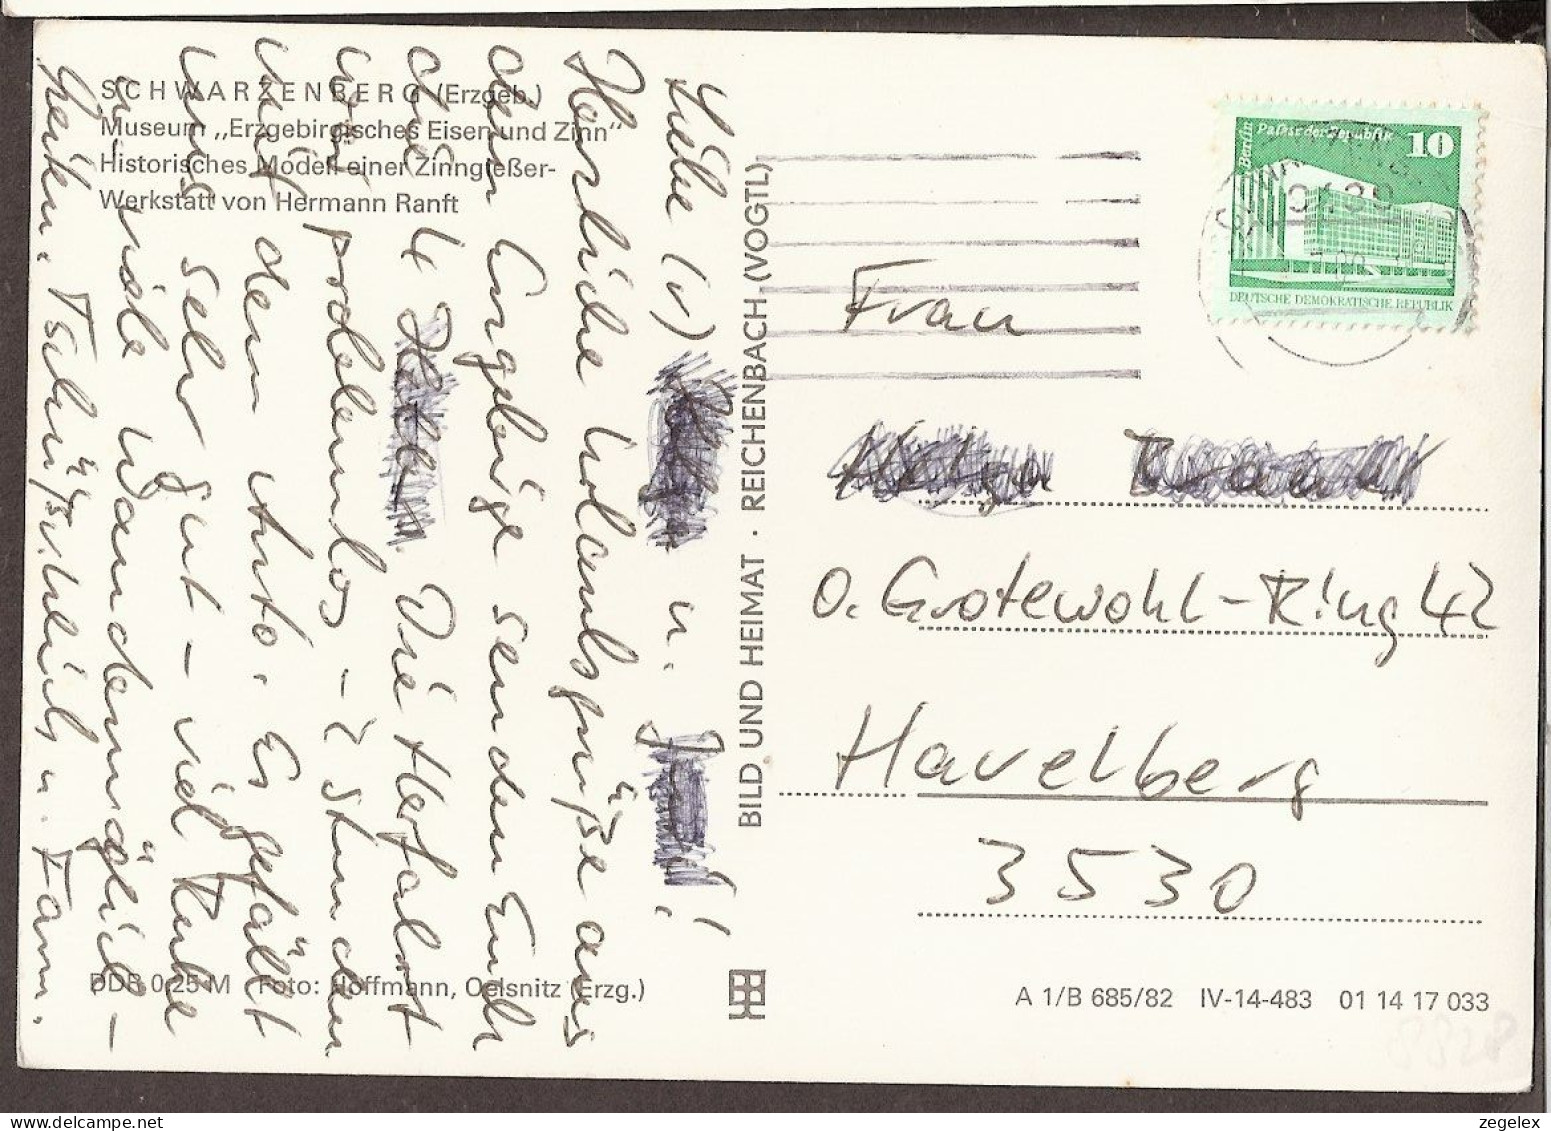 SCHWARZENBERG (Erzgeb.)
Museum „Erzgebirgisches Eisen und Zinn“
Historisches Modell einer Zinngießer-
Werkstatt von Hermann Ranft
Liebe (r) u.
Herzliche Urlaubsgrüße aus
dem Erzgebirge senden Euch
die 4 Die Herfahrt
war problemlos – 7 Stunden
mit dem Auto. Es gefällt
uns sehr gut – viel Ruhe
u. viele Wandermöglich-
keiten. Tschüßschleich u. Fam.
DDR 0,25 M Foto: Hoffmann, Oelsnitz (Erzg.)
BILD UND HEIMAT · REICHENBACH (VOGTL)
Berlin
Palast der Republik
10
DEUTSCHE DEMOKRATISCHE REPUBLIK
Frau
O. Grotewohl-Ring 42
Havelberg
3530
A 1/B 685/82 IV-14-483 01 14 17 033
zegelex